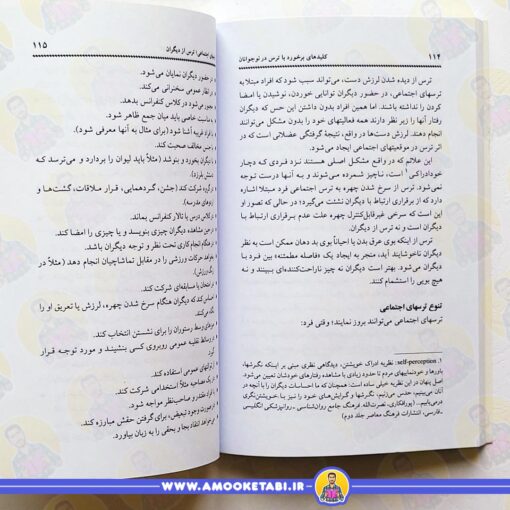 ۱۱۴ کلیدهای برخورد با ترس در نوجوانان
ترس از دیده شدن لرزش دست، می‌تواند سبب شود که افراد مبتلا به
ترسهای اجتماعی، در حضور دیگران توانایی خوردن، نوشیدن یا امضا
کردن را نداشته باشند. اما همین افراد بدون داشتن این حس که دیگران
رفتار آنها را زیر نظر دارند همه فعالیتهای خود را بدون مشکل می‌توانند
انجام دهند. لرزش دست‌ها در واقع، نتیجهٔ گرفتگی عضلانی است که در
اثر ترس در موقعیتهای اجتماعی ایجاد می‌شود.
این علائم که در واقع مشکل اصلی هستند نزد فردی که دچار
خودادراکی۱ است، ناچیز شمرده می‌شوند و به آنها درست توجه
نمی‌شود. ترس از سرخ شدن چهره به ترس اجتماعی فرد مبتلا اشاره
دارد که از برقراری ارتباط با دیگران نشئت می‌گیرد؛ در حالی که تصور او
این است که سرخی غیرقابل‌کنترل چهره علت عدم برقراری ارتباط با
دیگران است و نه ترس از دیگران.
ترس از اینکه بوی عرق بدن یا احیاناً بوی بد دهان ممکن است به نظر
دیگران ناخوشایند آید، منجر به ایجاد یک «فاصله مطمئنه» بین فرد با
دیگران می‌شود. بهتر است دیگران نه چیز ناراحت‌کننده‌ای ببینند و نه
هیچ بویی را استشمام کنند.
تنوع ترسهای اجتماعی
ترسهای اجتماعی می‌توانند بروز نمایند؛ وقتی فرد:
۱. self-perception: نظریه ادراک خویشتن، دیدگاهی نظری مبنی بر اینکه نگرشها،
باورها و خودنماییهای مردم تا حدود زیادی با مشاهده رفتارهای خودشان تعیین می‌شود.
اصل پنهان در این نظریه خیلی ساده است: همچنان که ما احساسات دیگران را با آنچه در
آنان می‌بینیم، حدس می‌زنیم، نگرشها و گرایش‌های خود را نیز با خویشتن‌نگری
درمی‌یابیم.. (پورافکاری، نصرت‌الله. فرهنگ جامع روان‌شناسی، روان‌پزشکی انگلیسی
ـ فارسی، انتشارات فرهنگ معاصر جلد دوم)
اجتماعی: ترس از دیگران ۱۱۵
در حضور دیگران نمایان می‌شود.
در انظار عمومی سخنرانی می‌کند.
مجبور می‌شود در کلاس کنفرانس بدهد.
به مناسبت خاصی باید میان جمع ظاهر شود.
با افراد غریبه آشنا شود (برای مثال به آنها معرفی شود).
با جنس مخالف صحبت کند.
با دیگران بخورد و بنوشد (مثلاً باید لیوان را بردارد و می‌ترسد که
دستش بلرزد).
در گروه شرکت کند (جشن، گردهمایی، قرار ملاقات، گشت‌ها و
اردوهای مدرسه).
در کلاس درس یا تالار کنفرانس بماند.
در حین مشاهده، دیگران چیزی بنویسد و یا چیزی را امضا کند.
هنگام انجام کاری تحت نظر و توجه دیگران باشد.
بخواهد حرکات ورزشی را در مقابل تماشاچیان انجام دهد (مثلاً در
زنگ ورزش).
در امتحان یا مسابقه‌ای شرکت کند.
احساس کند که دیگران هنگام سرخ شدن چهره، لرزش یا تعریق او را
نگاه می‌کنند.
وسط رستوران را برای نشستن انتخاب کند.
نقلیه عمومی روبروی کسی بنشیند و مورد توجه قرار
گیرد.
عمومی استفاده کند.
در یک مصاحبه مثلاً استخدامی شرکت کند.
با افراد ممتاز و صاحب‌نظر مواجه شود.
در صورت وجود تبعیض، برای گرفتن حقش مبارزه کند.
می‌خواهد انتقاد بجا و بحقی را به زبان بیاورد.
WWW.AMOOKETABI.IR